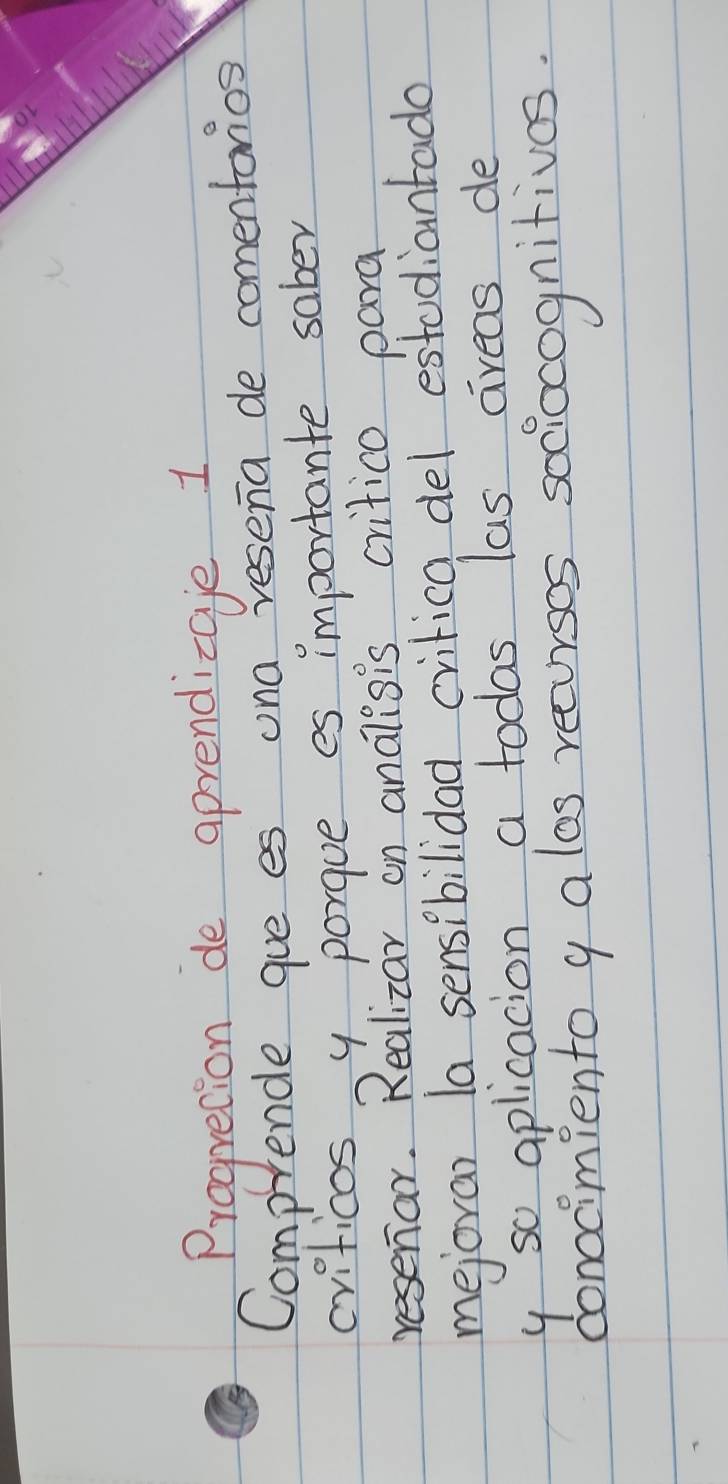 Progrecion de aprendizaje 1
Comprende que es una reseña de comentarios
criticos y porque es importante saber
reseñar. Realizar un análisis critico para
mejorar la sensibilidad critica del estudiantado
y su aplicacion a todas las áreas de
conocimiento y a los recursos sociocognitivos.
10